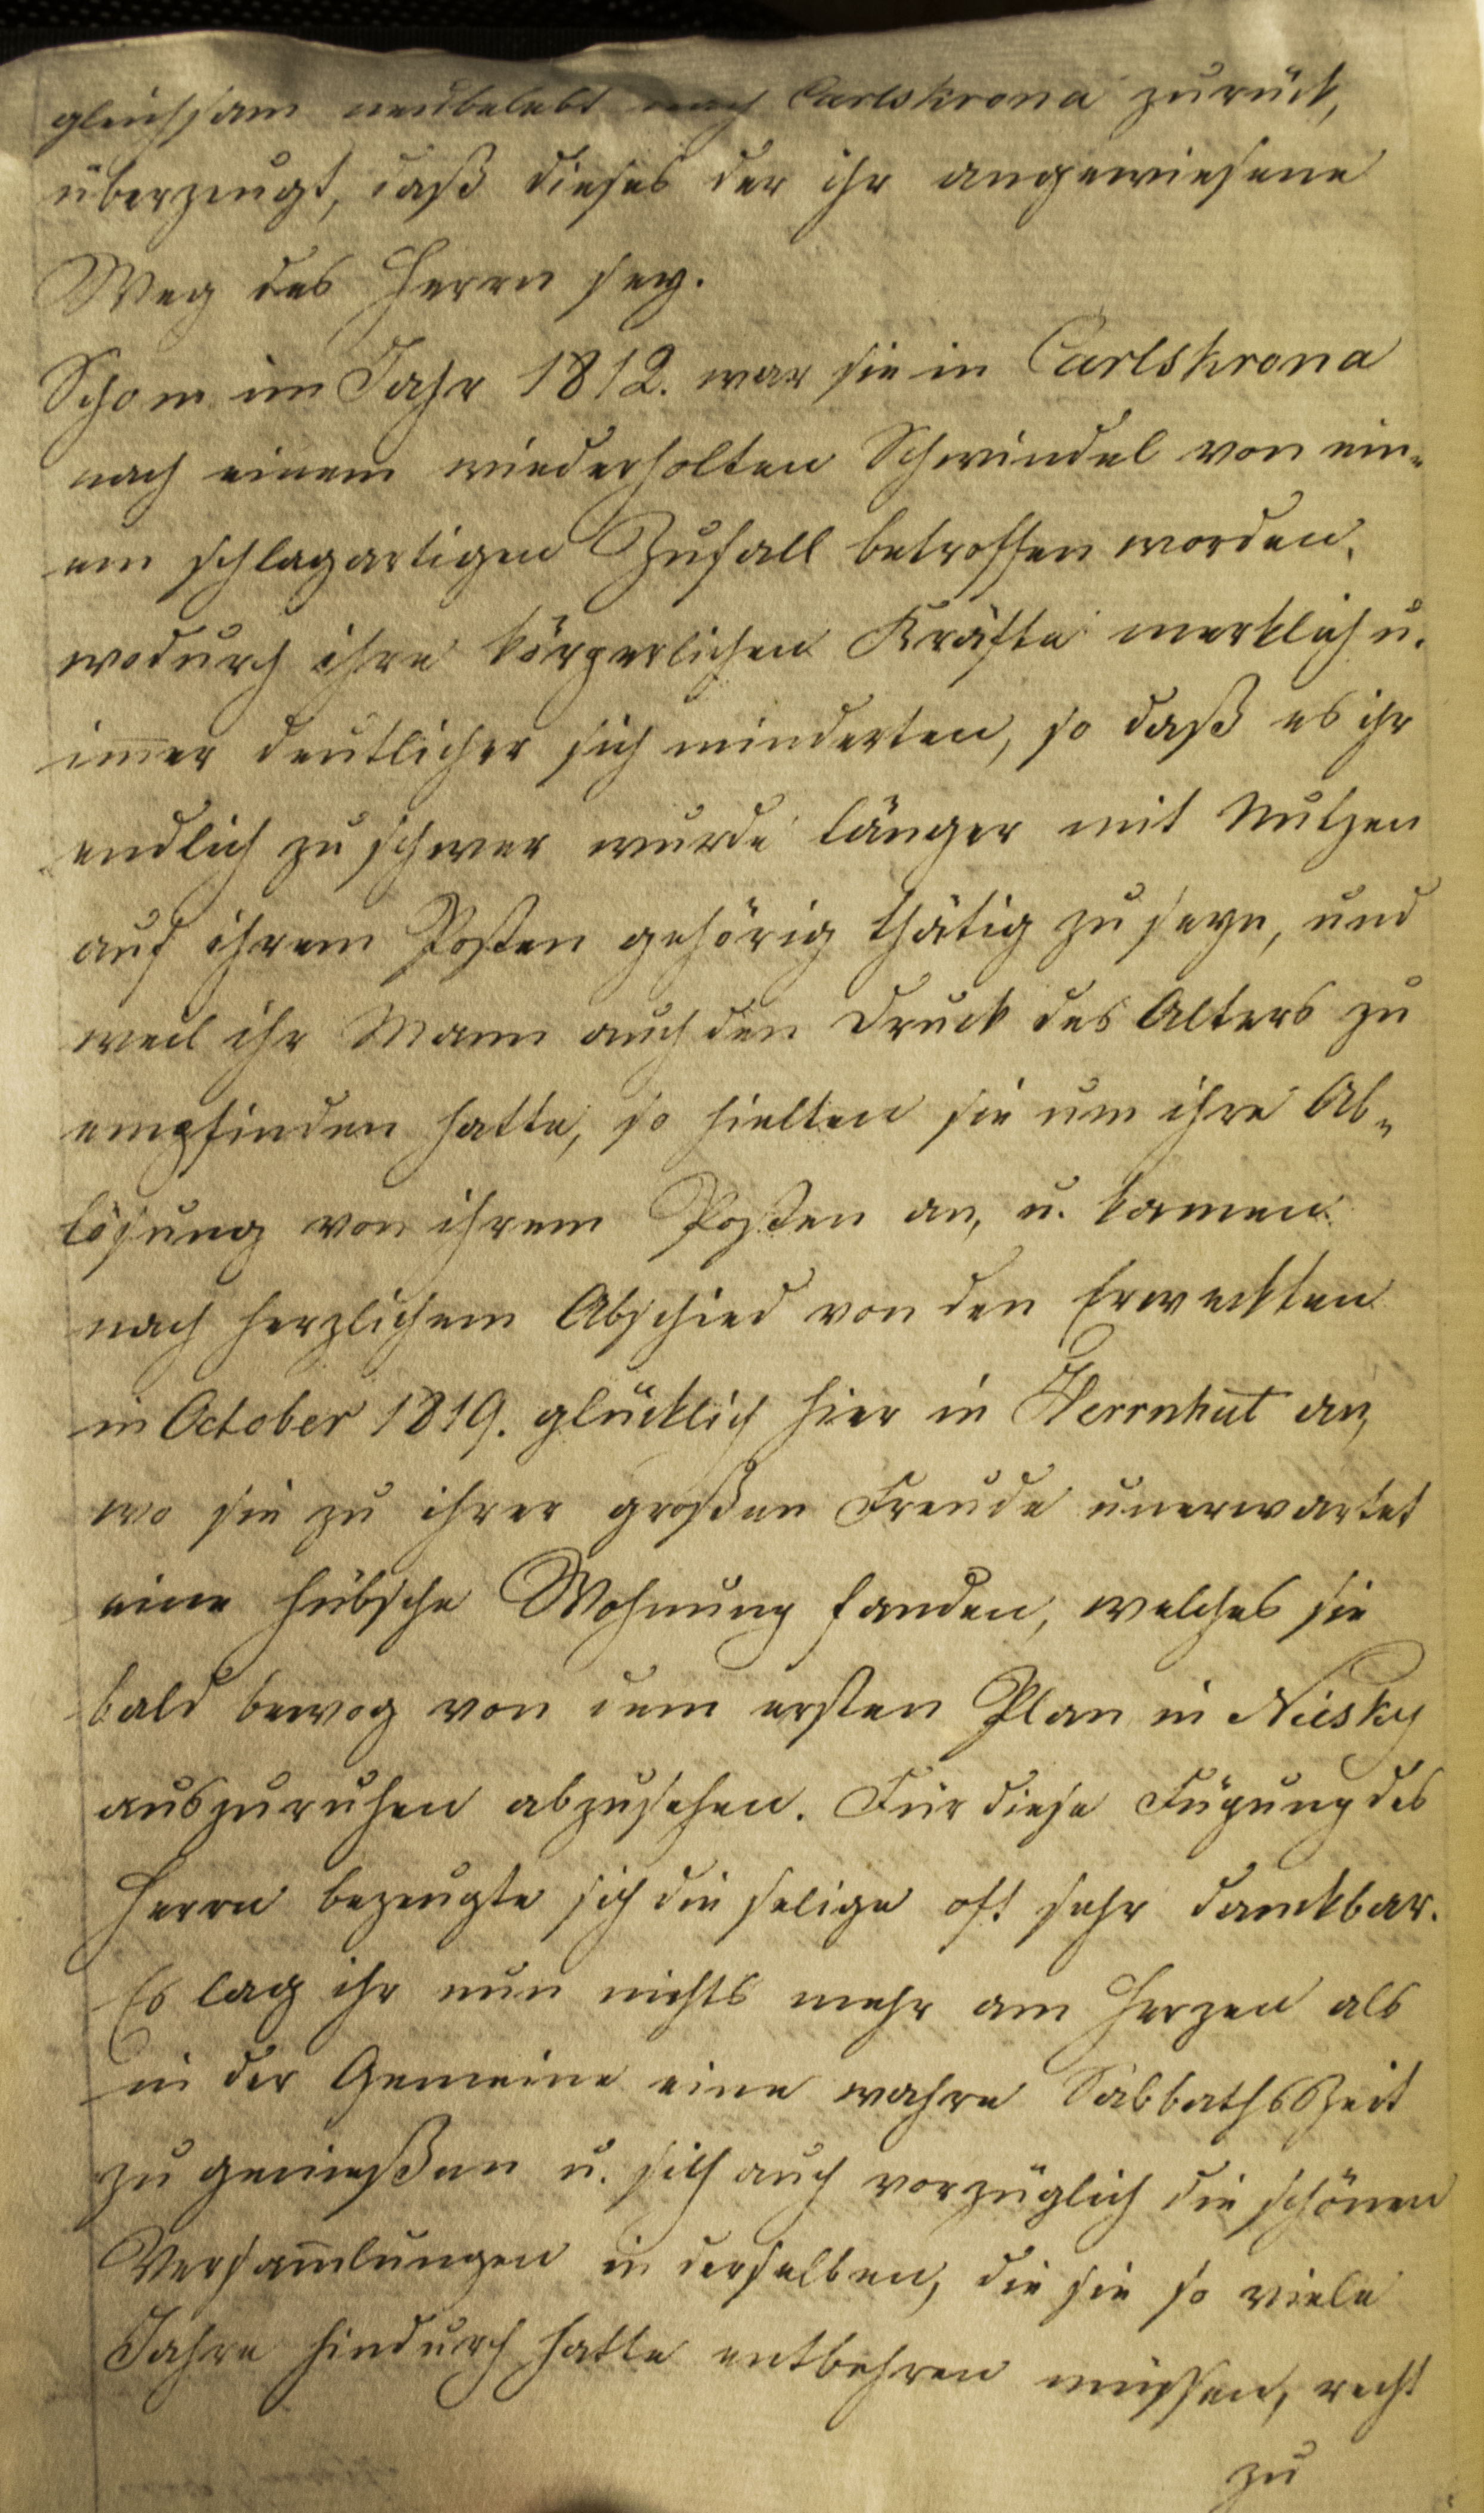 gleichsam neubelebt nach Carlskrona zurück,
überzeugt, daß dieses der ihr angewiesene
Weg des Herrn sey.
Schon im Jahr 1812. war sie in Carlskrona
nach einem wiederholten Schwindel von ein-
em schlagartigen Zufall betroffen worden,
wodurch ihre körperlichen Kräfte merklich u.
im̄er deutlicher sich minderten, so daß es ihr
endlich zu schwer wurde länger mit Nutzen
auf ihrem Posten gehörig thätig zu seyn, und
weil ihr Mann auch den Druck des Alters zu
empfinden hatte, so hielten sie um ihre Ab-
lösung von ihrem Posten an, u. kamen
nach herzlichem Abschied von den Erweckten
in October 1819. glücklich hier in Herrnhut an,
wo sie zu ihrer großen Freude unerwartet
eine hübsche Wohnung fanden, welches sie
bald bewog von dem ersten Plan in Niesky
auszuruhen abzusehen. Für diese Fügung des
Herrn bezeugte sich die selige oft sehr danckbar.
Es lag ihr nun nichts mehr am Herzen als
in der Gemeine eine wahre SabbathsZeit
zu genießen u. sich auch vorzüglich die schönen
Versam̄lungen in derselben, die sie so viele
Jahre hindurch hatte entbehren müssen, recht
zu